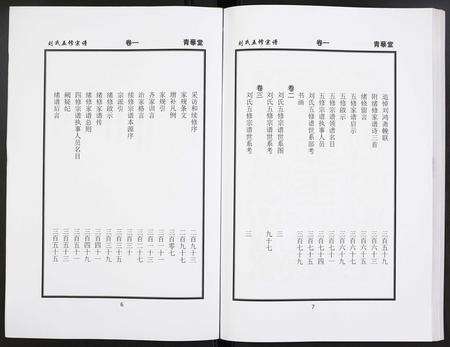 刘氏五修宗谱 卷一 青藜堂
采访和续修序 二百九十三
家规条文 二百九十七
增补凡例 三百零七
家规引 三百一十一
治家格言
齐家训言
续修宗谱本源序
宗派引
绪修啟示
绪修家谱传
绪修家谱总则 三百四十九
四修宗谱执事人员名目 三百五十一
阙疑纪 三百五十三
绪谱后言 三百五十五
6
刘氏五修宗谱 卷一 青藜堂
追悼刘鸿尧輓联 三百五十九
附绪修家谱诗三首 三百六十三
绪修留言 三百六十五
五修家谱启示 三百六十七
五修啟示 三百六十九
五修宗谱领谱名目 三百七十一
五修宗谱执事人员 三百七十四
刘氏五修谱世系部考 三百七十五
书函 三百七十九
卷二
刘氏五修宗谱世系图 三
刘氏五修宗谱世系考 九十七
卷三
刘氏五修宗谱世系考 三
7